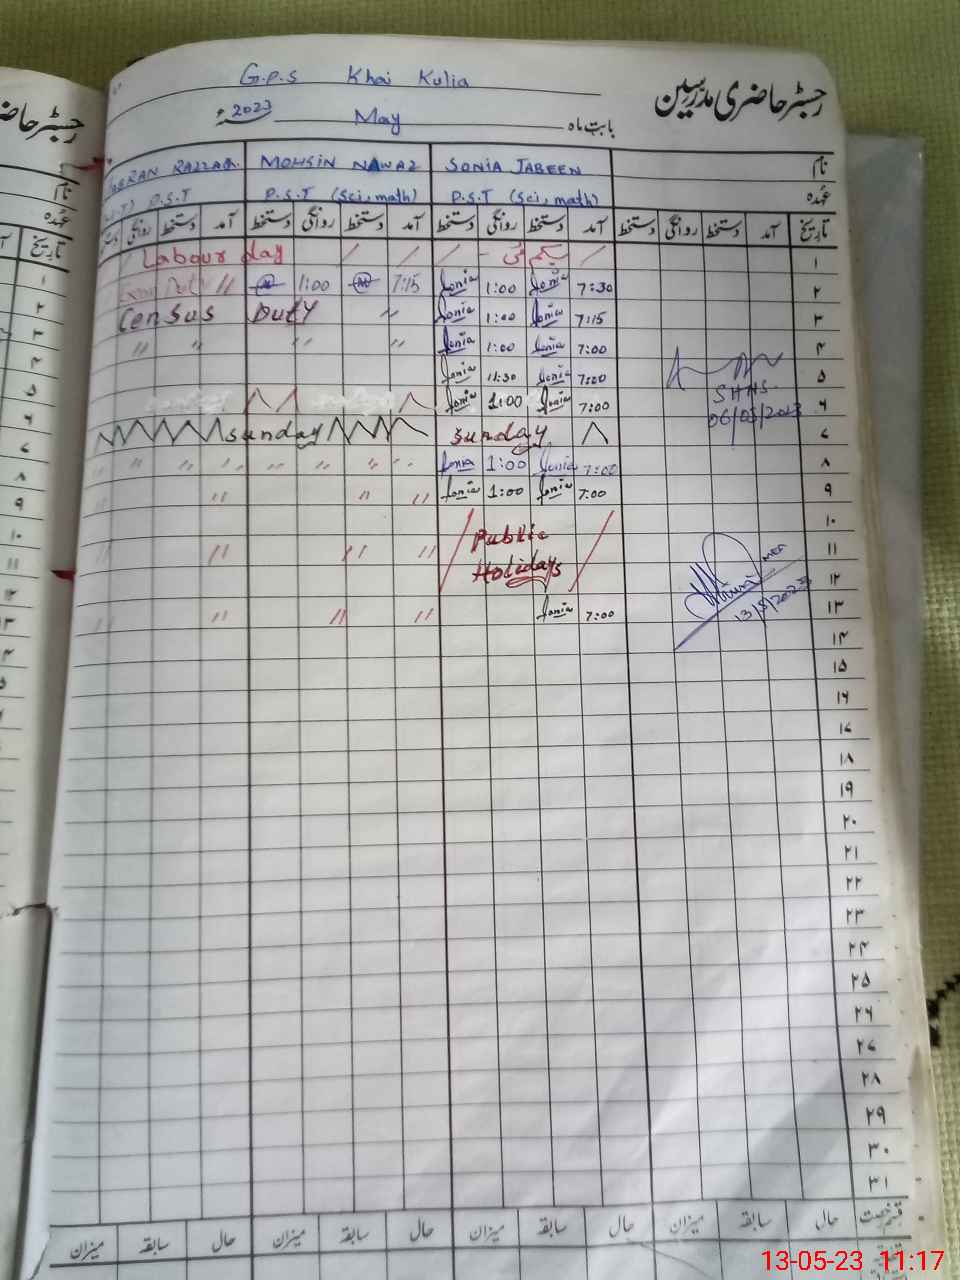 G.P.S Khai Kulia
رجسٹر حاضری مدرسین
2023ء May بابت ماہ
RAZZAQ MOHSIN NAWAZ SONIA JABEEN نام
P.S.T P.S.T (Sci, math) P.S.T (Sci, math) عہدہ
روانگی دستخط آمد دستخط روانگی دستخط آمد دستخط روانگی دستخط آمد دستخط روانگی دستخط آمد تاریخ
Labour day یکم مئی ۱
Duty 〃 M 1:00 M 7:15 Sonia 1:00 Sonia 7:30 ۲
Census Duty 〃 Sonia 1:00 Sonia 7:15 ۳
〃 〃 〃 〃 Sonia 1:00 Sonia 7:00 ۴
Sonia 11:30 Sonia 7:00 ۵
Sonia 1:00 Sonia 7:00 ۶
SHHS.
06/05/2023
Sunday Sunday ۷
〃 〃 〃 〃 〃 〃 〃 〃 Sonia 1:00 Sonia 7:00 ۸
〃 〃 〃 Sonia 1:00 Sonia 7:00 ۹
Public ۱۰
〃 〃 〃 〃 ۱۱
Holidays ۱۲
MEA
13/5/2023
〃 〃 〃 Sonia 7:00 ۱۳
۱۴
۱۵
۱۶
۱۷
۱۸
۱۹
۲۰
۲۱
۲۲
۲۳
۲۴
۲۵
۲۶
۲۷
۲۸
۲۹
۳۰
۳۱
میزان سابقہ حال میزان سابقہ حال میزان سابقہ حال میزان سابقہ حال قسم رخصت
13-05-23 11:17